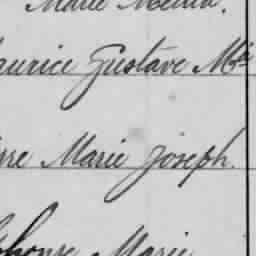 Marie
aurice Gustave Mie
rre Marie Joseph.
phonse Marie